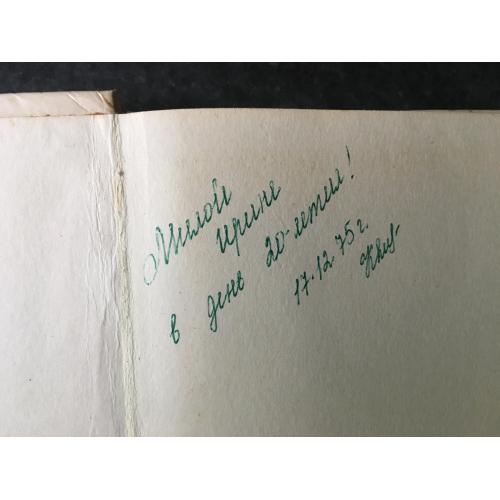 Милой
Ирине
в день 20-летия!
17.12.75 г.